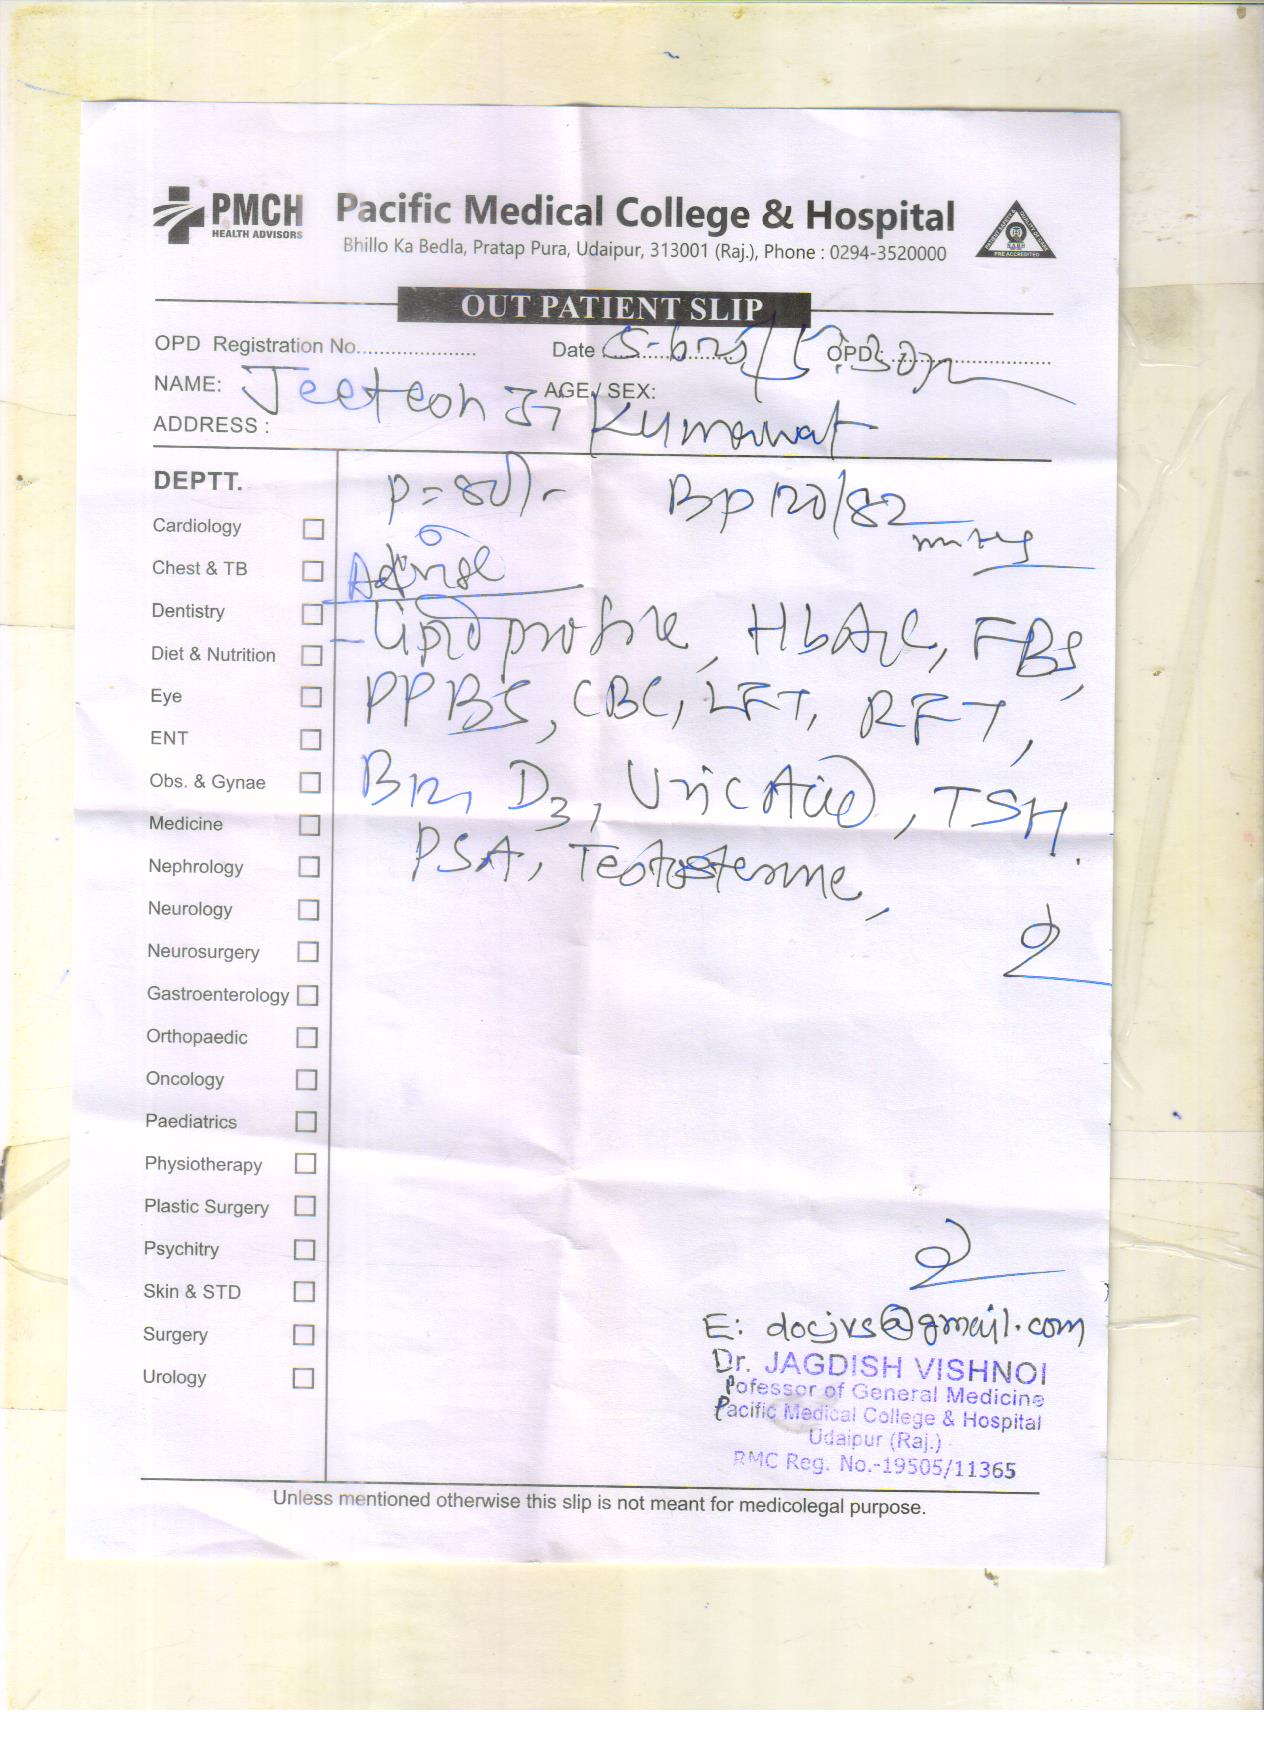 PMCH
HEALTH ADVISORS
Pacific Medical College & Hospital
Bhillo Ka Bedla, Pratap Pura, Udaipur, 313001 (Raj.), Phone : 0294-3520000
PRE ACCREDITED
OUT PATIENT SLIP
OPD Registration No..................... Date : OPD :
NAME: AGE / SEX:
Kumawat
ADDRESS :
DEPTT.
Cardiology
Chest & TB
Dentistry
Diet & Nutrition
Eye
ENT
Obs. & Gynae
Medicine
Nephrology
Neurology
Neurosurgery
Gastroenterology
Orthopaedic
Oncology
Paediatrics
Physiotherapy
Plastic Surgery
Psychitry
Skin & STD
Surgery
Urology
BP 120/82
mmHg
Advise
- Lipid profile, HbA1C, FBS,
PPBS, CBC, LFT, RFT,
B12, D3, Uric Acid, TSH.
PSA, Testosterone,
E: docjvs@gmail.com
Dr. JAGDISH VISHNOI
Pofessor of General Medicine
Pacific Medical College & Hospital
Udaipur (Raj.)
RMC Reg. No.-19505/11365
Unless mentioned otherwise this slip is not meant for medicolegal purpose.